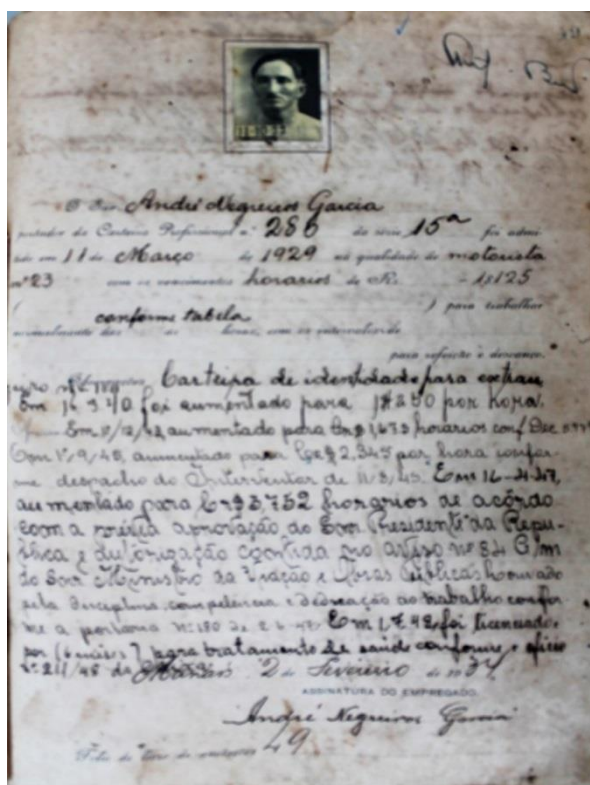 O Snr. André Negreiros Garcia
portador da Carteira Profissional n.º 286 da série 15ª foi admi-
tido em 11 de Março de 1929 na qualidade de motorista
nº 23 com os vencimentos horarios de Rs. 1$125
( conforme tabela ) para trabalhar
normalmente das ás horas, com os intervalos de
para refeição e descanso.
Carteira de identidade para
Em 16 9 40 foi aumentado para 1$350 por hora.
Em aumentado para horarios conf. Dec
Em 1º/9/45, aumentado para Cr$2,345 por hora confor-
me despacho do Interventor de Em 16-4-47,
aumentado para Cr$3,752 horarios de acôrdo
com a prévia aprovação do Exmo Presidente da Repu-
blica e autorização contida no aviso nº 84 G/m
do Snr. Ministro da Viação e Obras Públicas. Louvado
pela disciplina, competencia e dedicação ao trabalho confor-
me a portaria nº 180 de Em foi licenciado,
por (6 mêses) para tratamento de saúde conforme oficio
nº 211/48 da 2 de Fevereiro de 1937
ASSINATURA DO EMPREGADO.
André Negreiros Garcia
49